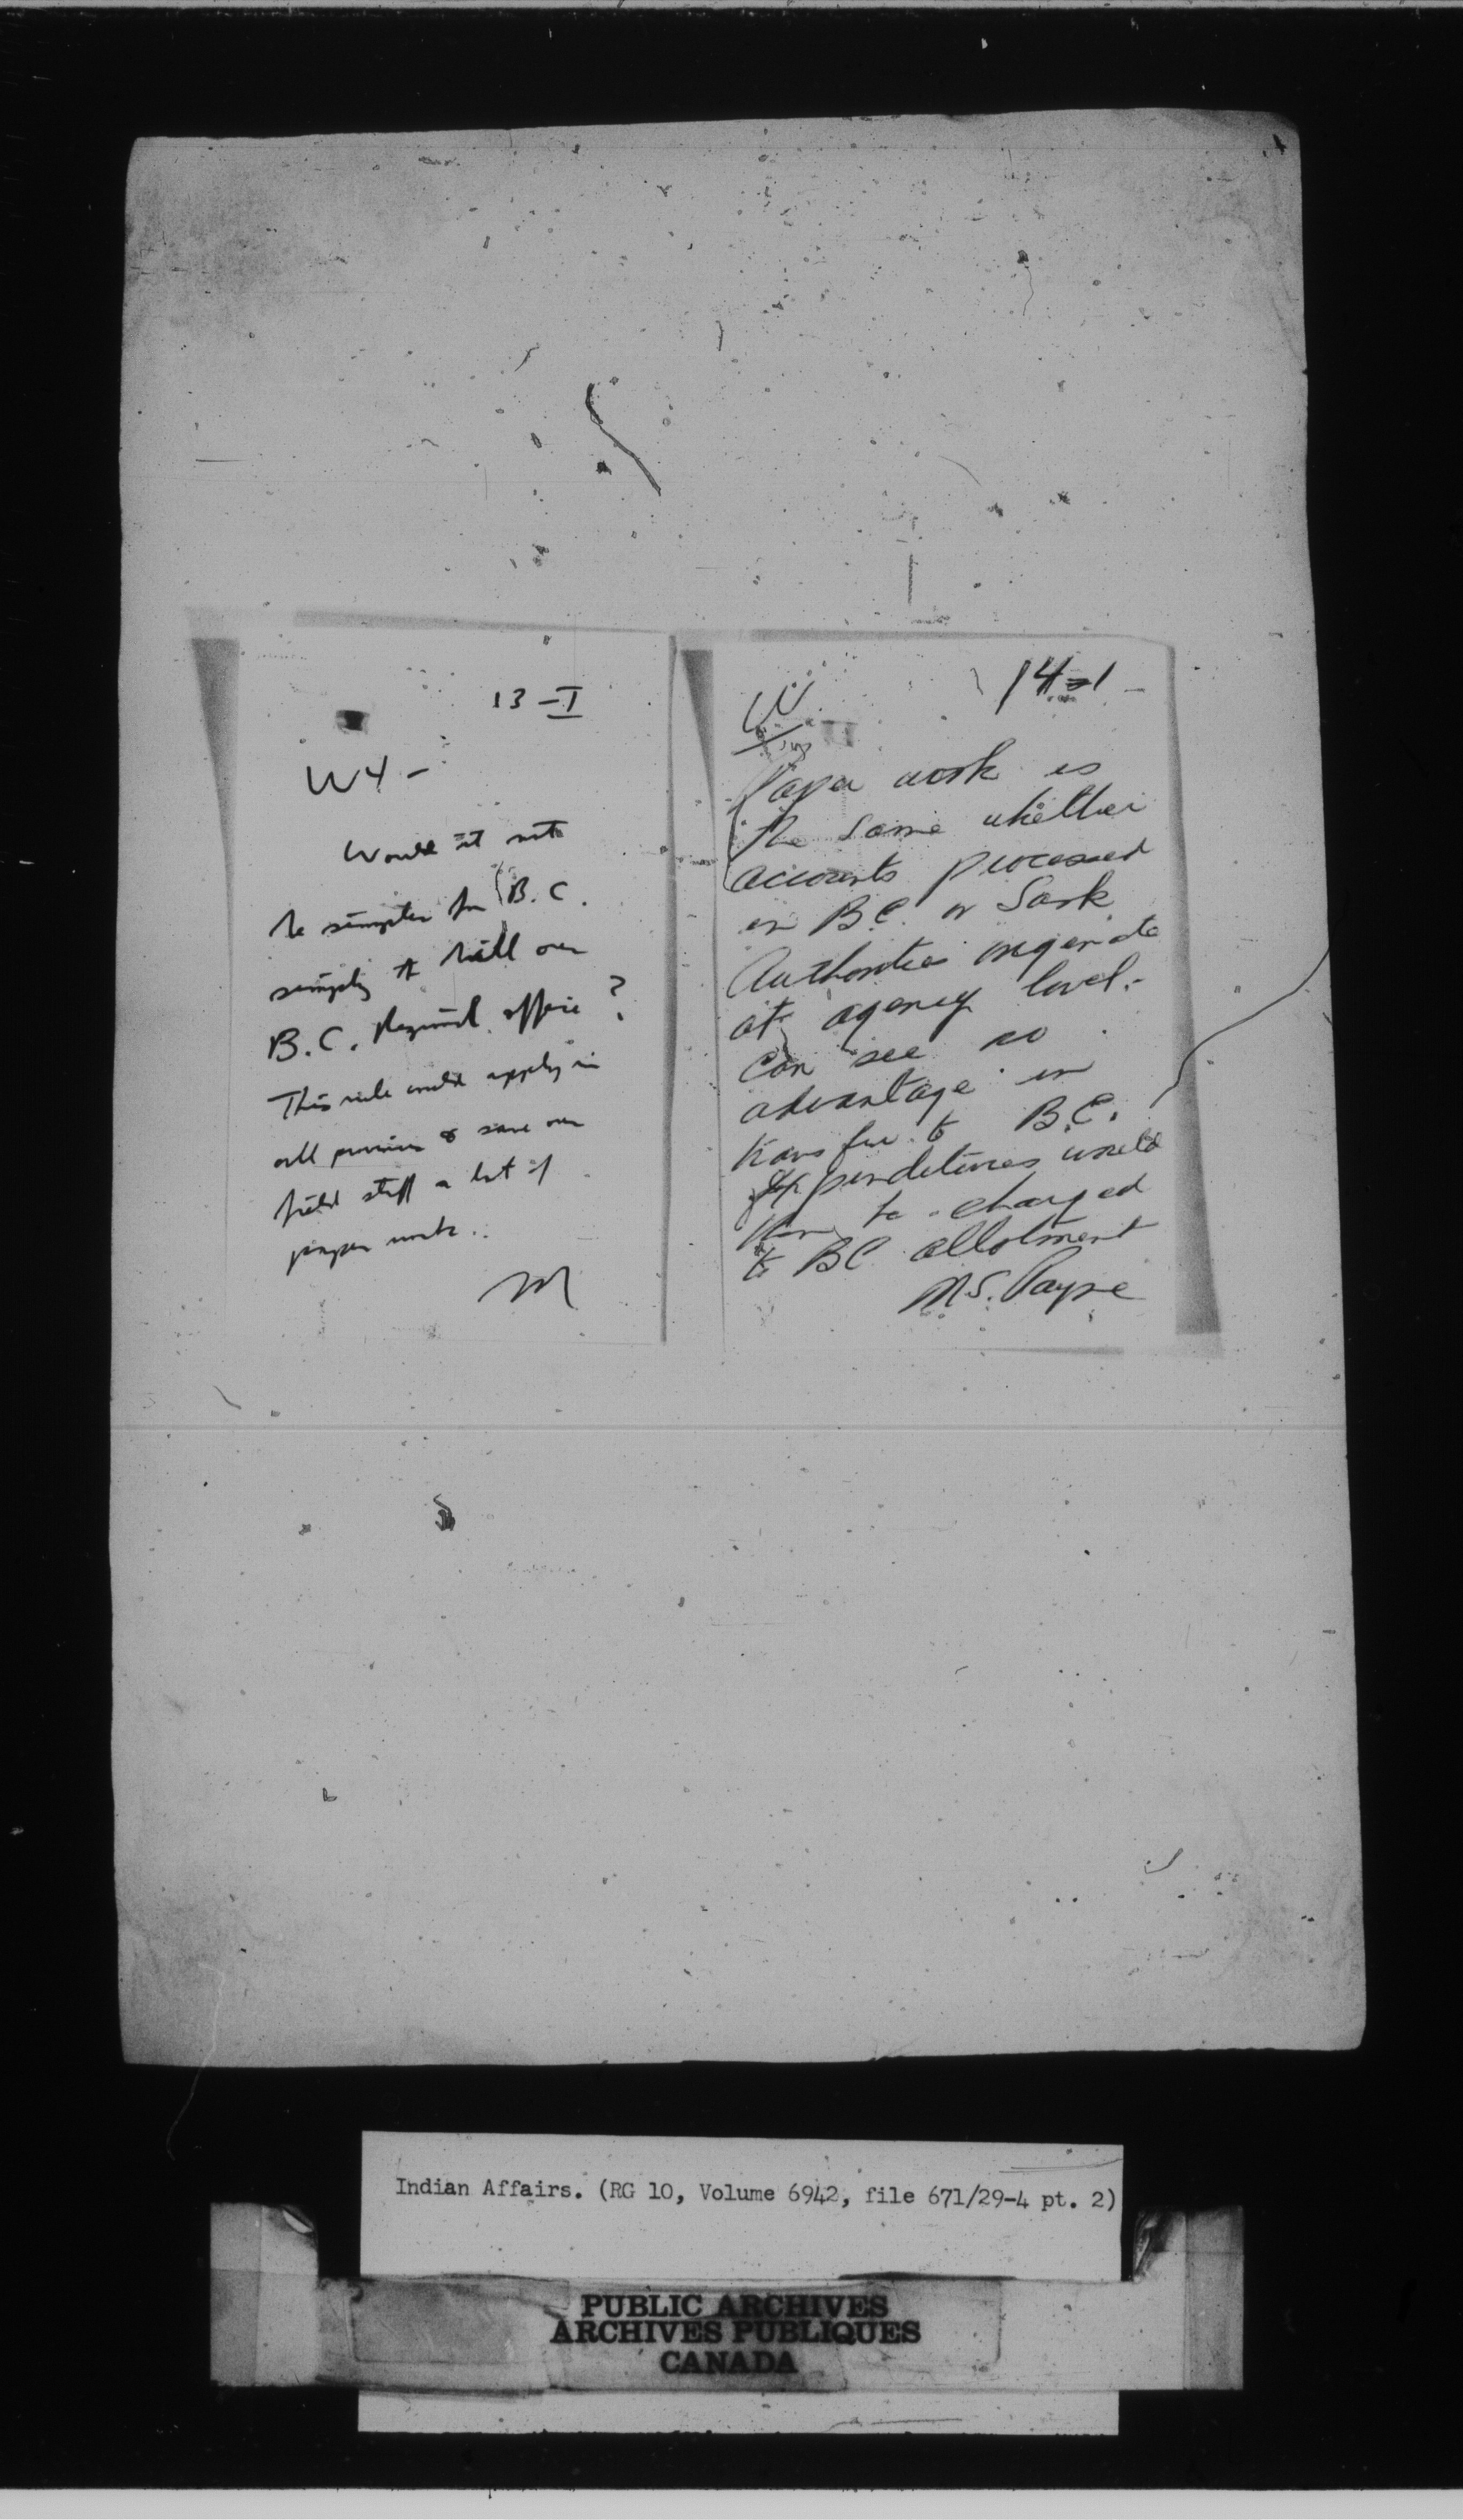 13-I
W4-
Would it not
be simpler for B.C.
simply to bill our
B.C. Regional office?
This rule could apply in
all provinces & save our
field staff a lot of
paper work.
M
14-1-
W
Paper work is
the same whether
accounts processed
in B.C. or Sask
Authorities originate
at agency level.-
Can see no
advantage in
transfer to B.C.
Expenditures would
then be charged
to BC allotment
M.S. Payne
Indian Affairs. (RG 10, Volume 6942, file 671/29-4 pt. 2)
PUBLIC ARCHIVES
ARCHIVES PUBLIQUES
CANADA